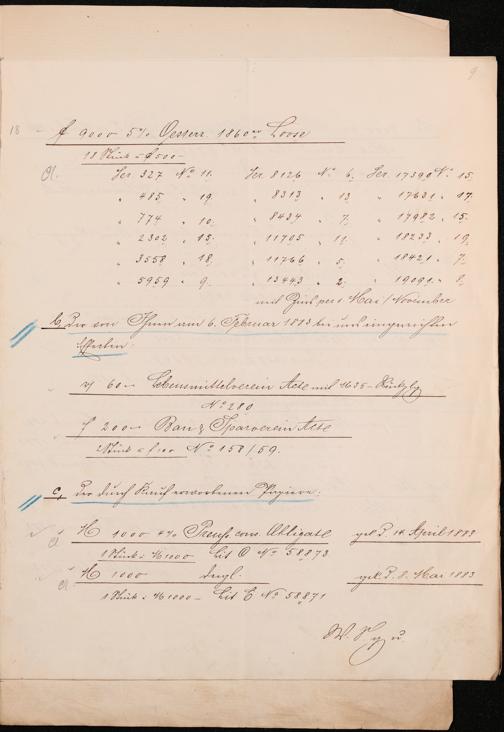 9
18 - f 9000 5% Oesterr. 1860er Loose
18 Stück à f 500 -
Ser. 327 No 11. Ser. 8126 No 6. Ser. 17390 No 15.
" 485 " 19. " 8313 " 13. " 17631 " 17.
" 774 " 10. " 8434 " 7. " 17982 " 15.
" 2302 " 15. " 11705 " 11. " 18233 " 19.
" 3558 " 18. " 11766 " 5. " 18421 " 7.
" 5959 " 9. " 13443 " 2. " 19091 " 8.
mit Zins per 1 Mai / November
b, Der von Ihnen am 6. Februar 1883 bei uns eingereichten
Effecten:
60 - Lebensmittelverein Acte mit
No 280
f 200 - Bau & Sparverein Acte
2 Stück à f 100 No 158/59.
c, Der durch Kauf erworbenen Papiere:
M 1000 4% Preuss. cons. Obligate gek. d. 14 April 1883
1 Stück à M 1000 Lit D No 58873
M 1000 desgl. gek. d. 8. Mai 1883
1 Stück à M 1000 - Lit E No 58871